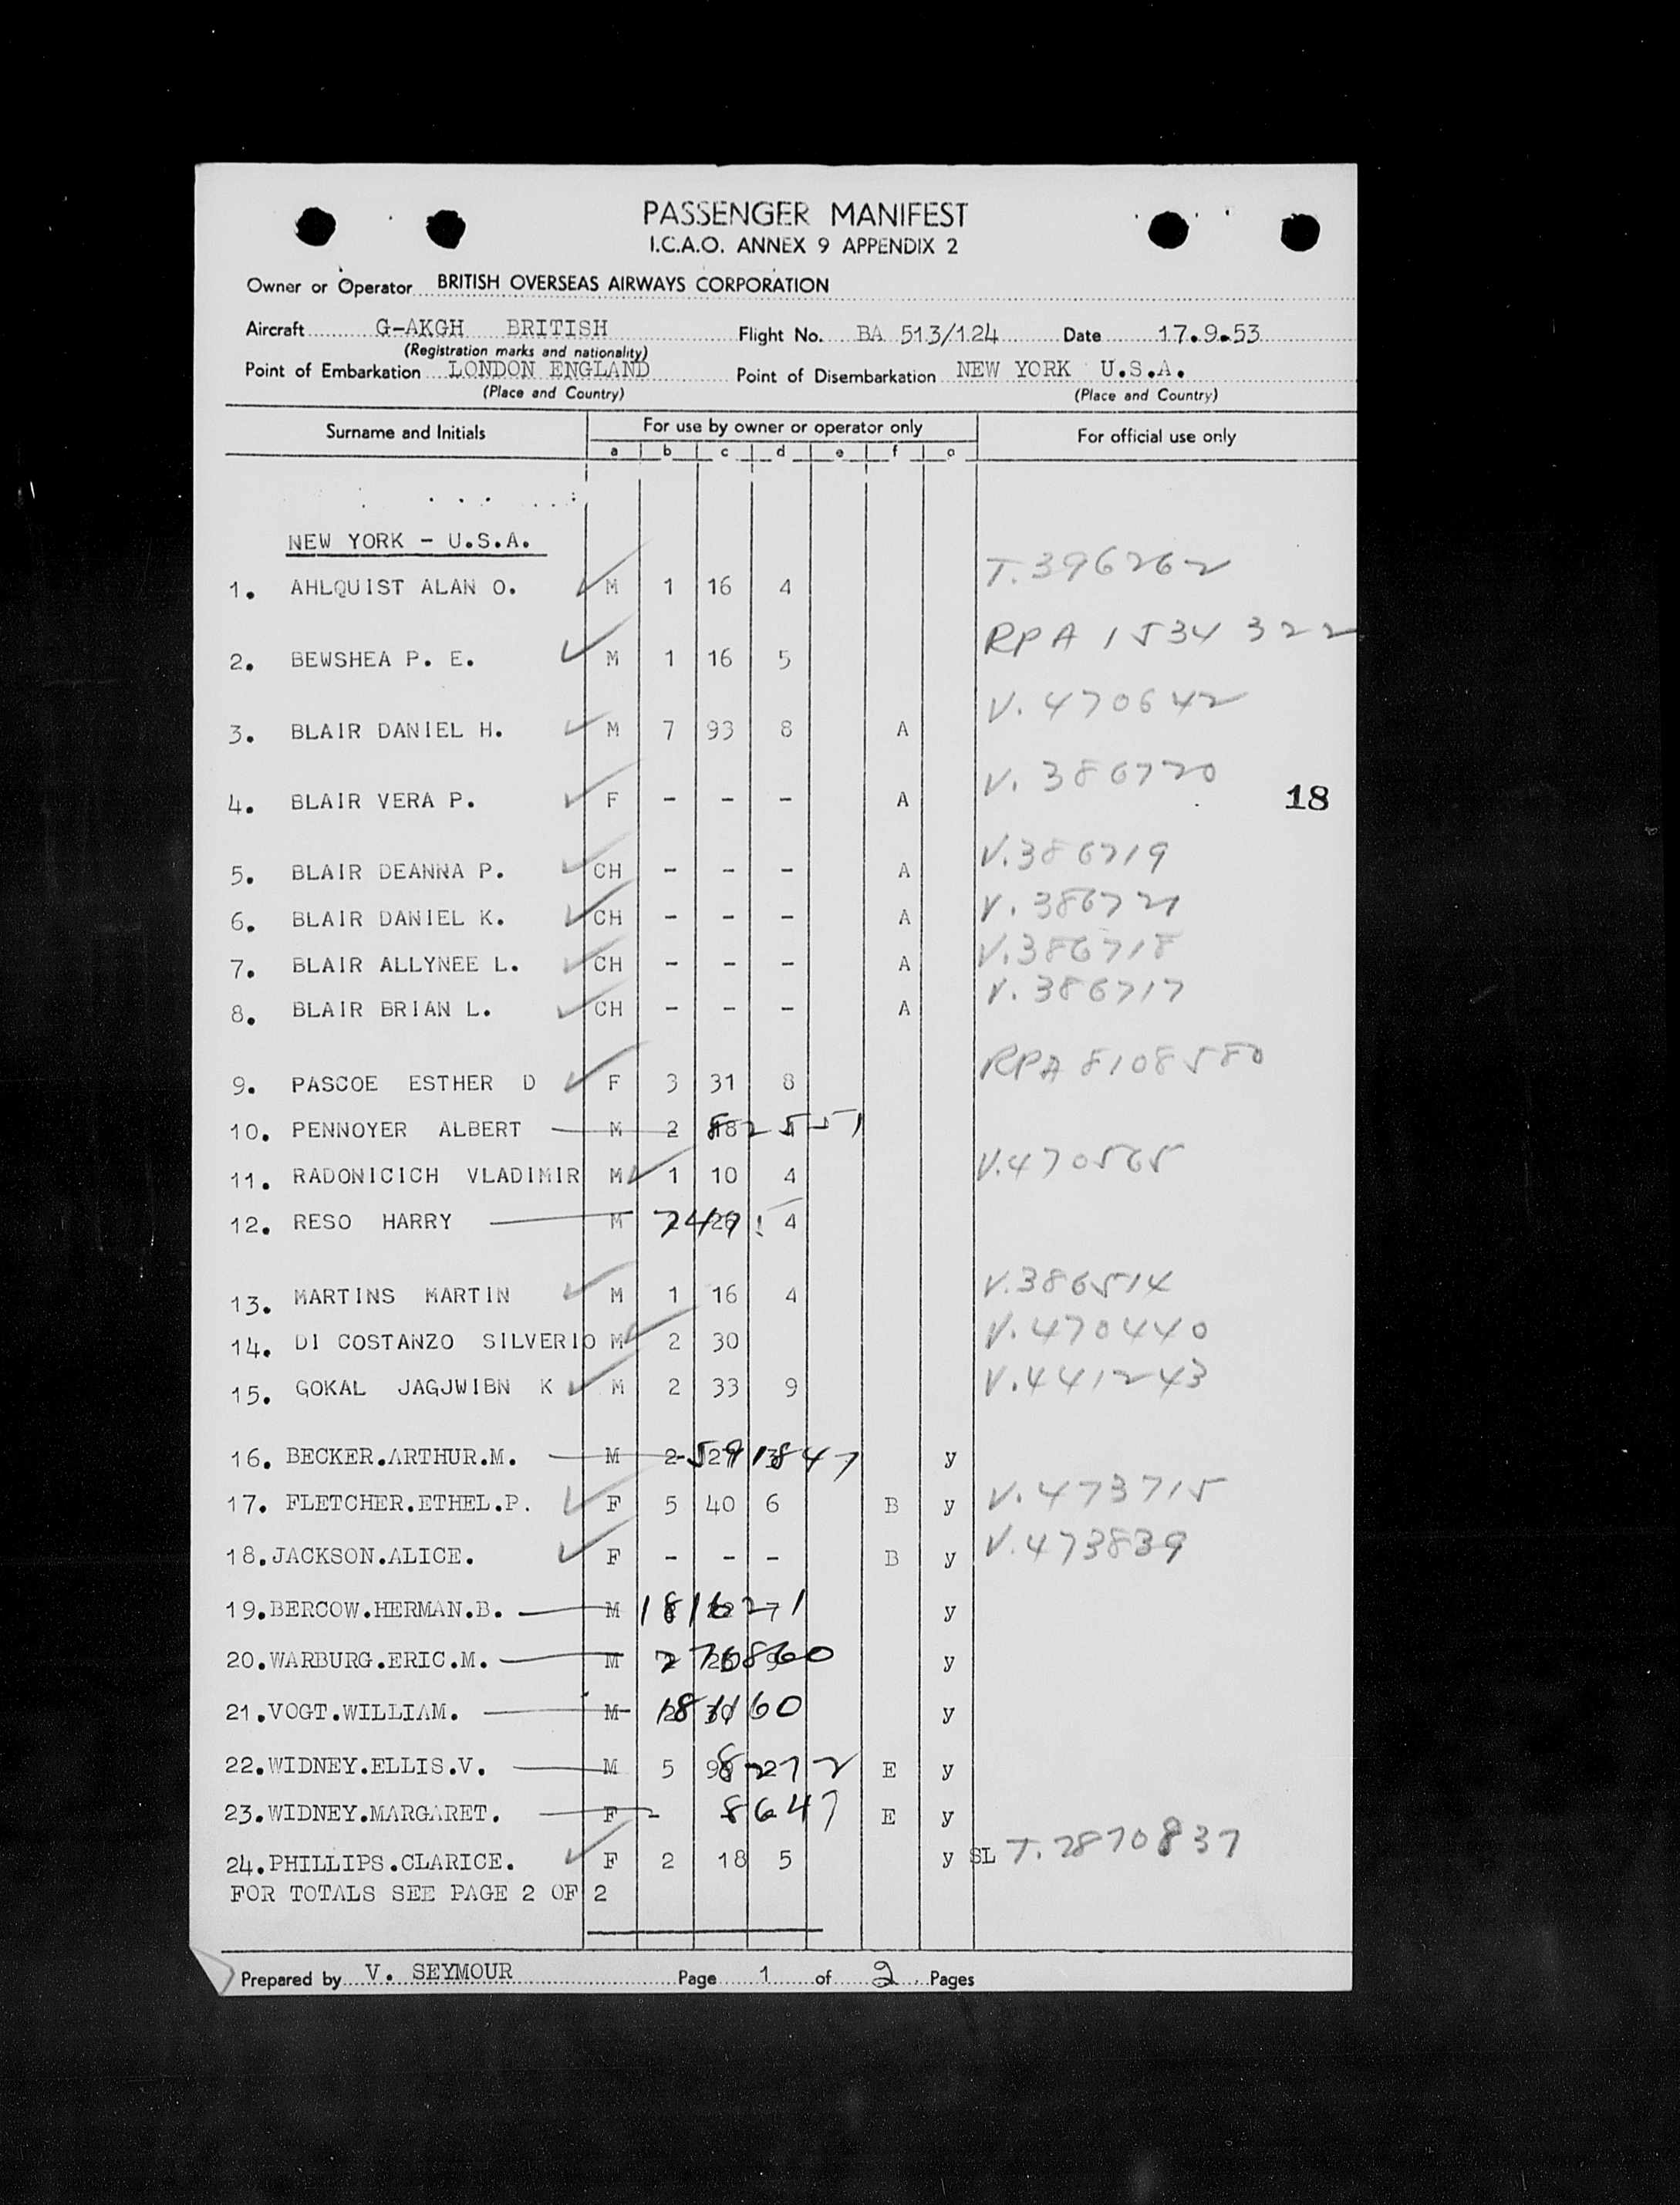 PASSENGER MANIFEST
I.C.A.O. ANNEX 9 APPENDIX 2
Owner or Operator BRITISH OVERSEAS AIRWAYS CORPORATION
Aircraft G-AKGH BRITISH Flight No. BA 513/124 Date 17.9.53
(Registration marks and nationality)
Point of Embarkation LONDON ENGLAND Point of Disembarkation NEW YORK U.S.A.
(Place and Country) (Place and Country)
Surname and Initials For use by owner or operator only For official use only
a b c d e f g
NEW YORK - U.S.A.
1. AHLQUIST ALAN O. M 1 16 4 T.396262
2. BEWSHEA P. E. M 1 16 5 RPA 1534 322
3. BLAIR DANIEL H. M 7 93 8 A V. 470642
4. BLAIR VERA P. F - - - A V. 386720
18
5. BLAIR DEANNA P. CH - - - A V.386719
6. BLAIR DANIEL K. CH - - - A V. 386721
7. BLAIR ALLYNEE L. CH - - - A V.386718
8. BLAIR BRIAN L. CH - - - A V. 386717
9. PASCOE ESTHER D F 3 31 8 RPA 8108580
10. PENNOYER ALBERT M 2
11. RADONICICH VLADIMIR M 1 10 4 V.470565
12. RESO HARRY M 4
13. MARTINS MARTIN M 1 16 4 V.386514
14. DI COSTANZO SILVERIO M 2 30 V.470440
15. GOKAL JAGJWIBN K M 2 33 9 V.441243
16. BECKER.ARTHUR.M. M 2 591847 y
17. FLETCHER.ETHEL.P. F 5 40 6 B y V. 473715
18. JACKSON.ALICE. F - - - B y V.473839
19. BERCOW.HERMAN.B. M 1816271 y
20. WARBURG.ERIC.M. M 276860 y
21. VOGT.WILLIAM. M y
22. WIDNEY.ELLIS.V. M 5 8272 E y
23. WIDNEY.MARGARET. F - 8647 E y
24. PHILLIPS.CLARICE. F 2 18 5 y SL T. 2870837
FOR TOTALS SEE PAGE 2 OF 2
Prepared by V. SEYMOUR Page 1 of 2 Pages